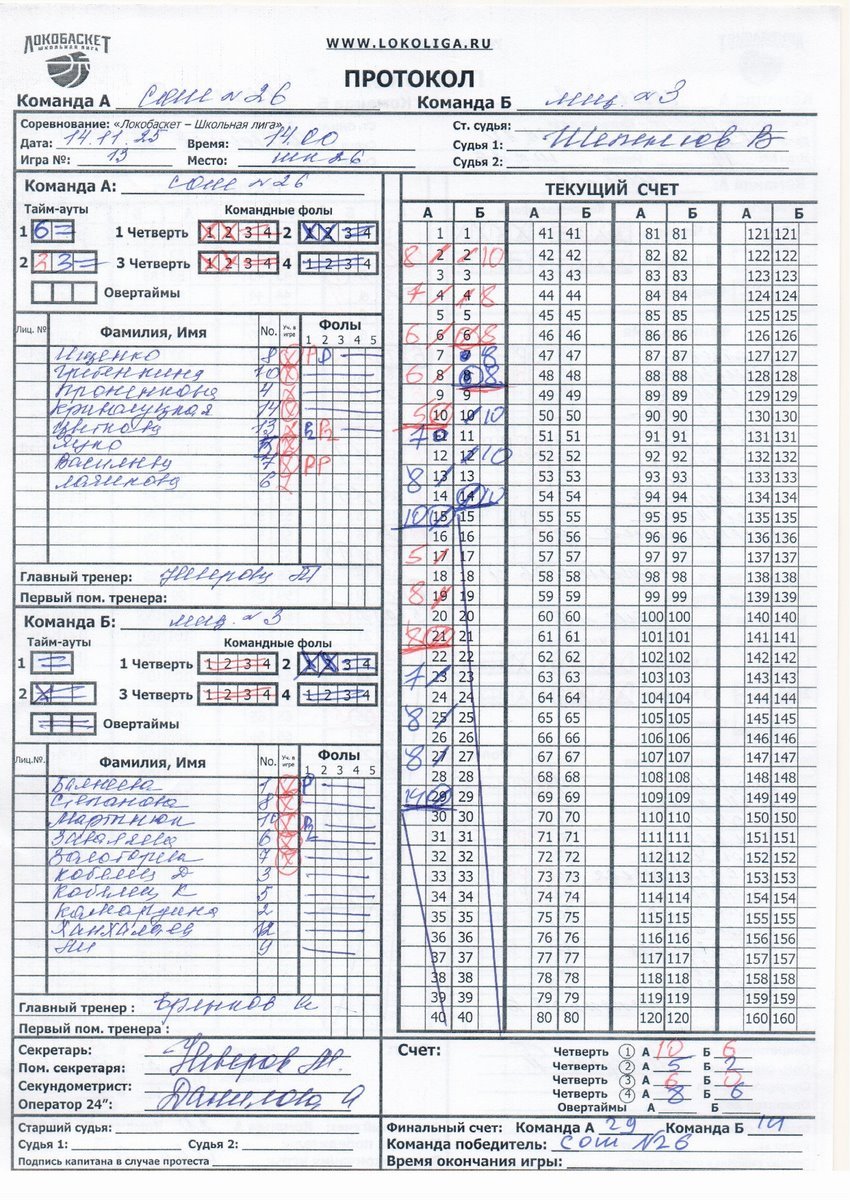 ЛОКОБАСКЕТ
ШКОЛЬНАЯ ЛИГА
WWW.LOKOLIGA.RU
ПРОТОКОЛ
Команда А сош №26 Команда Б лиц №3
Соревнование: «Локобаскет – Школьная лига»
Дата: 14.11.25 Время: 14.00
Игра №: 13 Место: шк 26
Ст. судья:
Судья 1: В
Судья 2:
Команда А: сош №26
Тайм-ауты Командные фолы
1 6 1 Четверть 1 2 3 4 2 1 2 3 4
2 2 3 3 Четверть 1 2 3 4 4 1 2 3 4
Овертаймы
Лиц. № Фамилия, Имя No. Уч. в игре Фолы
1 2 3 4 5
Ищенко 8 P P
Гребенкина 10
Кроненкова 4
Криволуцкая 14
Цветкова 13 P2 P2
Яцко
Васильева 7 P P
6
Главный тренер: Неверова
Первый пом. тренера:
Команда Б: лиц. №3
Тайм-ауты Командные фолы
1 1 Четверть 1 2 3 4 2 1 2 3 4
2 3 Четверть 1 2 3 4 4 1 2 3 4
Овертаймы
Лиц.№. Фамилия, Имя No. Уч. в игре Фолы
1 2 3 4 5
1 P
Степанова 8
Мартынюк 10 P2
6
7
Кобелец Д 3
Кобелец К 5
2
12
Ни 9
Главный тренер :
Первый пом. тренера :
ТЕКУЩИЙ СЧЕТ
А Б А Б А Б А Б
1 1 41 41 81 81 121 121
8 2 2 10 42 42 82 82 122 122
3 3 43 43 83 83 123 123
7 4 4 8 44 44 84 84 124 124
5 5 45 45 85 85 125 125
6 6 6 8 46 46 86 86 126 126
7 7 8 47 47 87 87 127 127
6 8 8 8 48 48 88 88 128 128
9 9 49 49 89 89 129 129
5 10 10 10 50 50 90 90 130 130
7 11 11 51 51 91 91 131 131
12 12 10 52 52 92 92 132 132
8 13 13 53 53 93 93 133 133
14 14 10 54 54 94 94 134 134
10 15 15 55 55 95 95 135 135
16 16 56 56 96 96 136 136
5 17 17 57 57 97 97 137 137
18 18 58 58 98 98 138 138
8 19 19 59 59 99 99 139 139
20 20 60 60 100 100 140 140
8 21 21 61 61 101 101 141 141
22 22 62 62 102 102 142 142
7 23 23 63 63 103 103 143 143
24 24 64 64 104 104 144 144
8 25 25 65 65 105 105 145 145
26 26 66 66 106 106 146 146
8 27 27 67 67 107 107 147 147
28 28 68 68 108 108 148 148
14 29 29 69 69 109 109 149 149
30 30 70 70 110 110 150 150
31 31 71 71 111 111 151 151
32 32 72 72 112 112 152 152
33 33 73 73 113 113 153 153
34 34 74 74 114 114 154 154
35 35 75 75 115 115 155 155
36 36 76 76 116 116 156 156
37 37 77 77 117 117 157 157
38 38 78 78 118 118 158 158
39 39 79 79 119 119 159 159
40 40 80 80 120 120 160 160
Секретарь:
Пом. секретаря: Неверов М.
Секундометрист:
Оператор 24”: Данилова А
Счет: Четверть 1 А 10 Б 6
Четверть 2 А 5 Б 2
Четверть 3 А 6 Б 0
Четверть 4 А 8 Б 6
Овертаймы А Б
Старший судья:
Судья 1: Судья 2:
Подпись капитана в случае протеста
Финальный счет: Команда А 29 Команда Б 14
Команда победитель: сош №26
Время окончания игры: